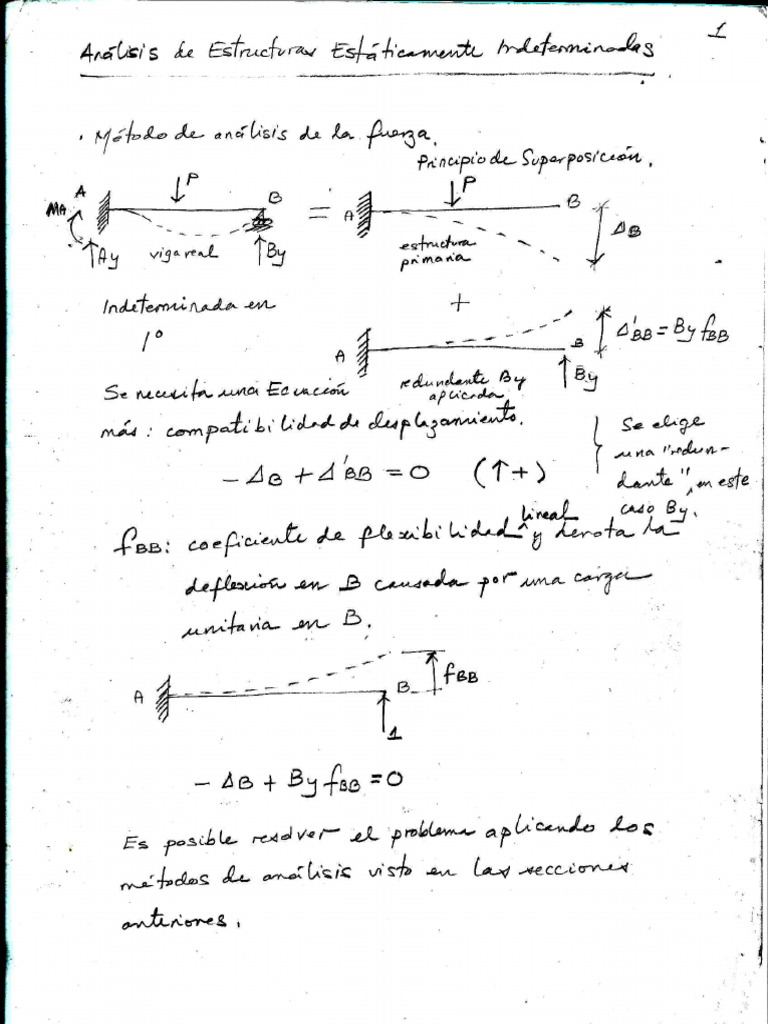 1
Análisis de Estructuras Estáticamente Indeterminadas
. Método de análisis de la fuerza.
Principio de Superposición.
P
A
B
MA
Ay
viga real
By
=
P
A
B
ΔB
estructura
primaria
Indeterminada en
1º
+
A
B
Δ'BB = By fBB
By
redundante By
aplicada
Se necesita una Ecuación
más: compatibilidad de desplazamiento.
- ΔB + Δ'BB = 0 (↑+)
Se elige
una "redun-
dante", en este
caso By.
lineal
fBB: coeficiente de flexibilidad ^ y denota la
deflexión en B causada por una carga
unitaria en B.
A
B
fBB
1
- ΔB + By fBB = 0
Es posible resolver el problema aplicando los
métodos de análisis visto en las secciones
anteriores.